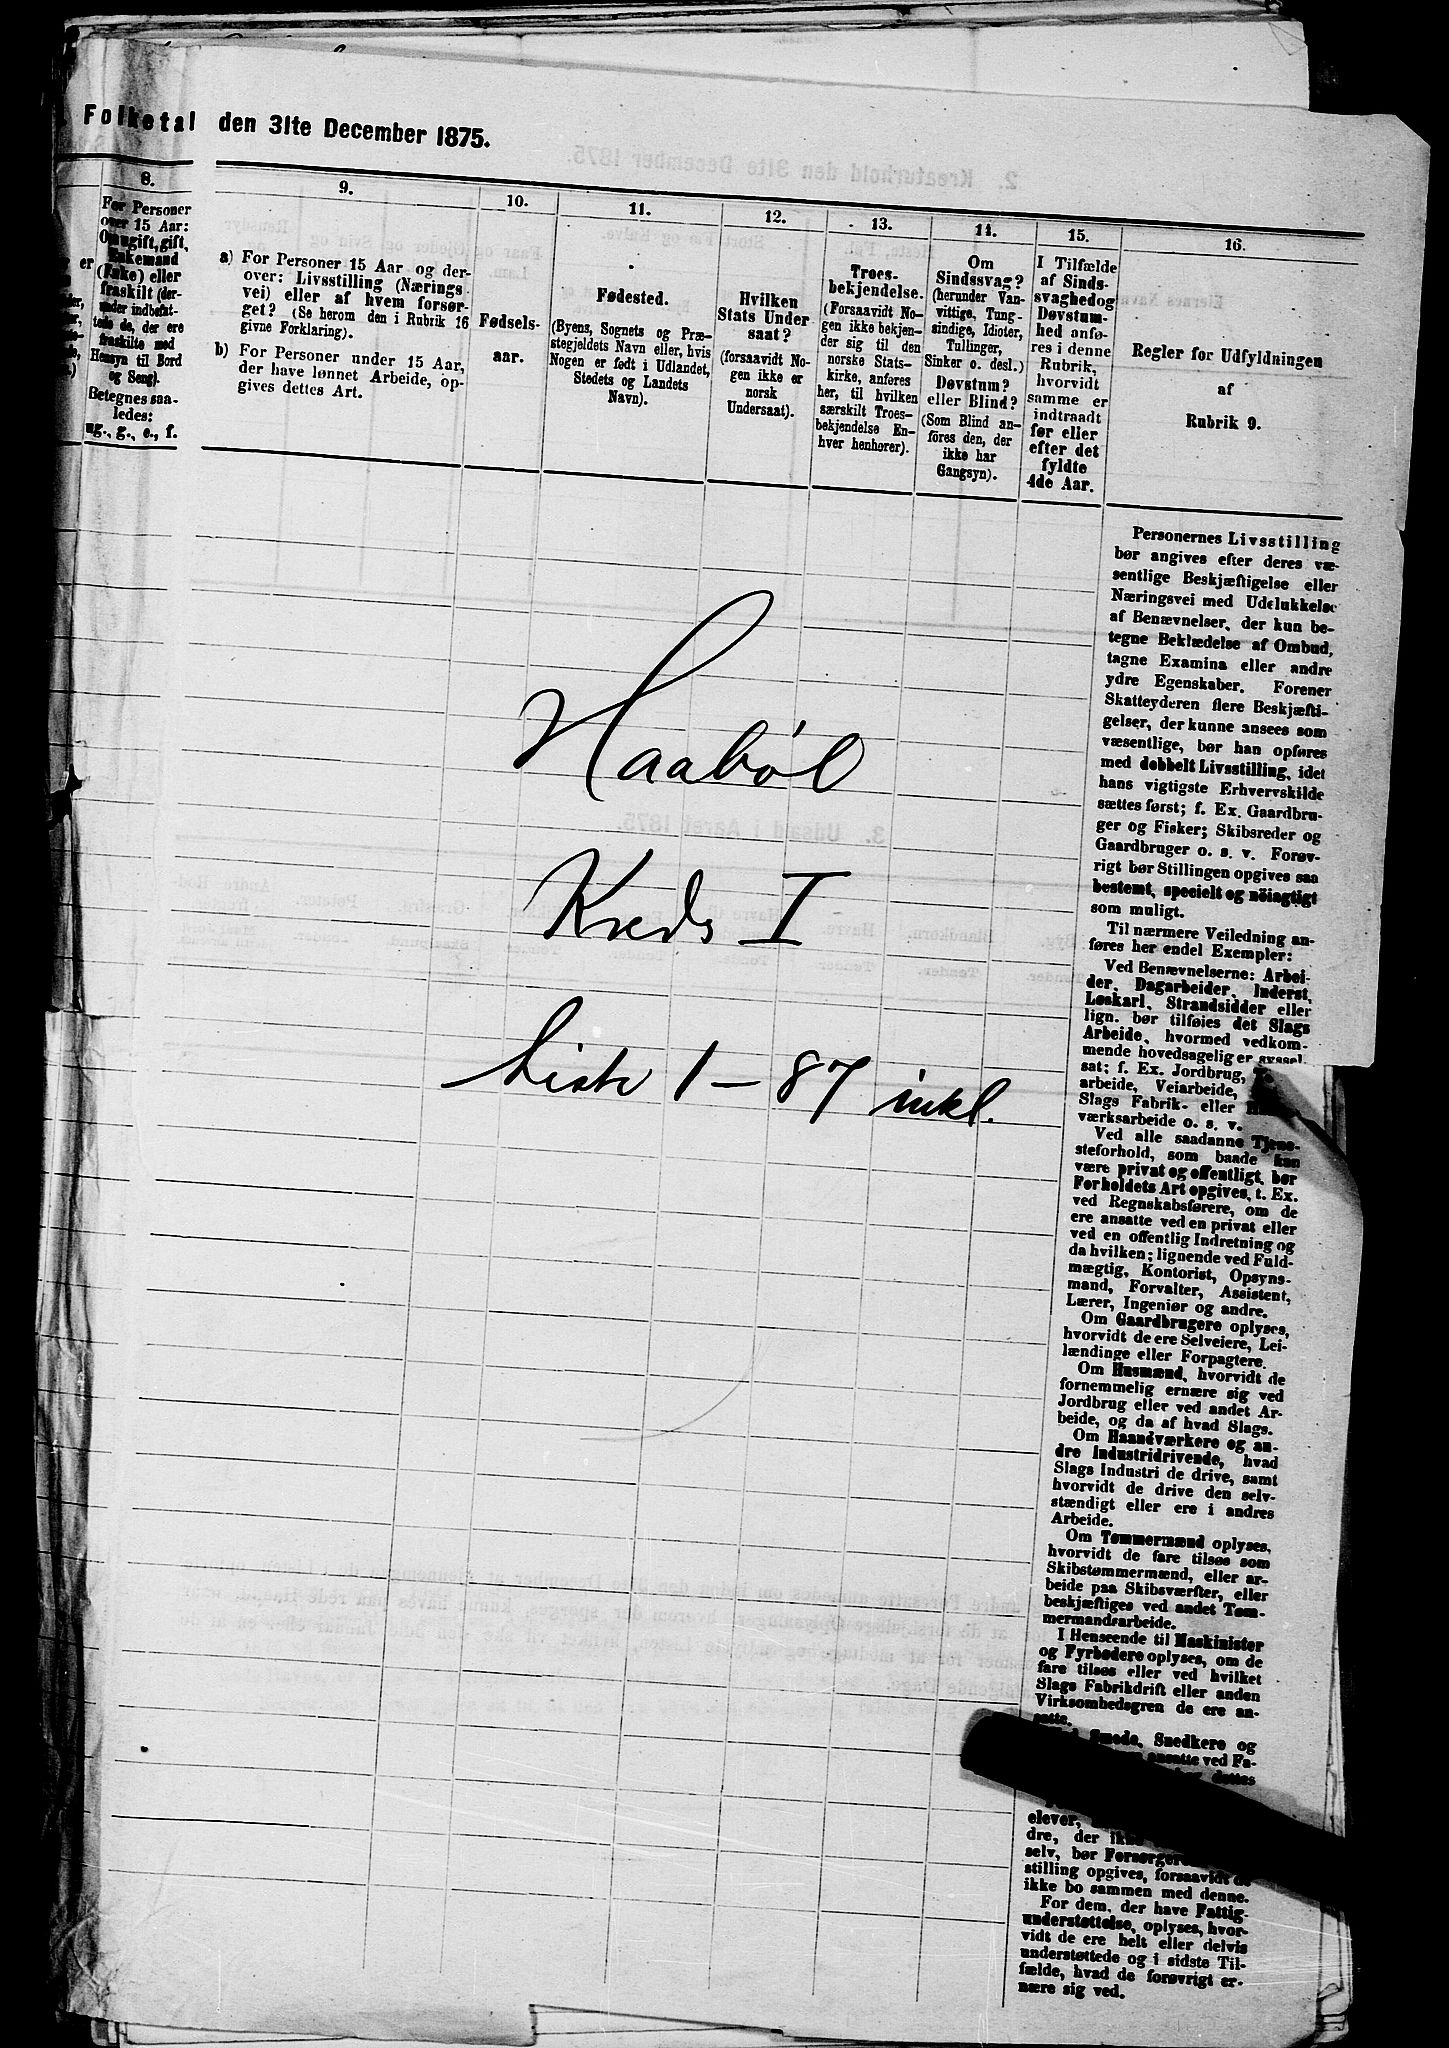 Folketal den 31te December 1875.
8.
For Personer
over 15 Aar:
Om ugift, gift,
Enkemand
(Enke) eller
fraskilt (der-
under indbefat-
tede de, der ere
fraskilte med
Hensyn til Bord
og Seng).
Betegnes saa-
ledes:
ug., g., e., f.
9.
a) For Personer 15 Aar og der-
over: Livsstilling (Nærings
vei) eller af hvem forsør-
get? (Se herom den i Rubrik 16
givne Forklaring).
b) For Personer under 15 Aar,
der have lønnet Arbeide, op-
gives dettes Art.
10.
Fødsels-
aar.
11.
Fødested.
(Byens, Sognets og Præ-
stegjeldets Navn eller, hvis
Nogen er født i Udlandet,
Stedets og Landets
Navn).
12.
Hvilken
Stats Under
saat?
(forsaavidt No-
gen ikke er
norsk
Undersaat).
13.
Troes-
bekjendelse.
(Forsaavidt No-
gen ikke bekjen-
der sig til den
norske Stats-
kirke, anføres
her, til hvilken
særskilt Troes-
bekjendelse En-
hver henhører).
14.
Om
Sindssvag?
(herunder Van-
vittige, Tung-
sindige, Idioter,
Tullinger,
Sinker o. desl.)
Døvstum?
eller Blind?
(Som Blind an-
føres den, der
ikke har
Gangsyn).
15.
I Tilfælde
af Sinds-
svaghedog
Døvstum-
hed anfø-
res i denne
Rubrik,
hvorvidt
samme er
indtraadt
før eller
efter det
fyldte
4de Aar.
16.
Regler for Udfyldningen
af
Rubrik 9.
Personernes Livsstilling
bør angives efter deres væ-
sentlige Beskjæftigelse eller
Næringsvei med Udelukkelse
af Benævnelser, der kun be-
tegne Beklædelse af Ombud,
tagne Examina eller andre
ydre Egenskaber. Forener
Skatteyderen flere Beskjæfti-
gelser, der kunne ansees som
væsentlige, bør han opføres
med dobbelt Livsstilling, idet
hans vigtigste Erhvervskilde
sættes først; f. Ex. Gaardbru-
ger og Fisker; Skibsreder og
Gaardbruger o. s. v. Forøv-
rigt bør Stillingen opgives saa
bestemt, specielt og nöiagtigt
som muligt.
Til nærmere Veiledning an-
føres her endel Exempler:
Ved Benævnelserne: Arbei-
der, Dagarbeider, Inderst,
Løskarl, Strandsidder eller
lign. bør tilføies det Slags
Arbeide, hvormed vedkom-
mende hovedsagelig er syssel
sat; f. Ex. Jordbrug,
arbeide, Veiarbeide,
Slags Fabrik- eller
værksarbeide o. s. v.
Ved alle saadanne Tjene-
steforhold, som baade kan
være privat og offentligt, bør
Forholdets Art opgives, t. Ex.
ved Regnskabsførere, om de
ere ansatte ved en privat eller
ved en offentlig Indretning og
da hvilken; lignende ved Fuld-
mægtig, Kontorist, Opsyns-
mand, Forvalter, Assistent,
Lærer, Ingeniør og andre.
Om Gaardbrugere oplyses,
hvorvidt de ere Selveiere, Lei-
lændinge eller Forpagtere.
Om Husmænd, hvorvidt de
fornemmelig ernære sig ved
Jordbrug eller ved andet Ar-
beide, og da af hvad Slags.
Om Haandværkere og an-
dre Industridrivende, hvad
Slags Industri de drive, samt
hvorvidt de drive den selv-
stændigt eller ere i andres
Arbeide.
Om Tømmermænd oplyses,
hvorvidt de fare tilsøs som
Skibstømmermænd, eller ar-
beide paa Skibsværfter, eller
beskjæftiges ved andet Tøm-
mermandsarbeide.
I Henseende til Maskinister
og Fyrbødere oplyses, om de
fare tilsøs eller ved hvilket
Slags Fabrikdrift eller anden
Virksomhedsgren de ere an-
satte.
Smede, Snedkere og
ansatte ved Fa-
dettes
elever,
dre, der ikke
selv, bør Forsørgere
stilling opgives, forsaavidt de
ikke bo sammen med denne.
For dem, der have Fattig-
understøttelse, oplyses, hvor-
vidt de ere helt eller delvis
understøttede og i sidste Til-
fælde, hvad de forøvrigt er-
nære sig ved.
Haabøl
Kreds I
Liste 1 – 87 inkl.